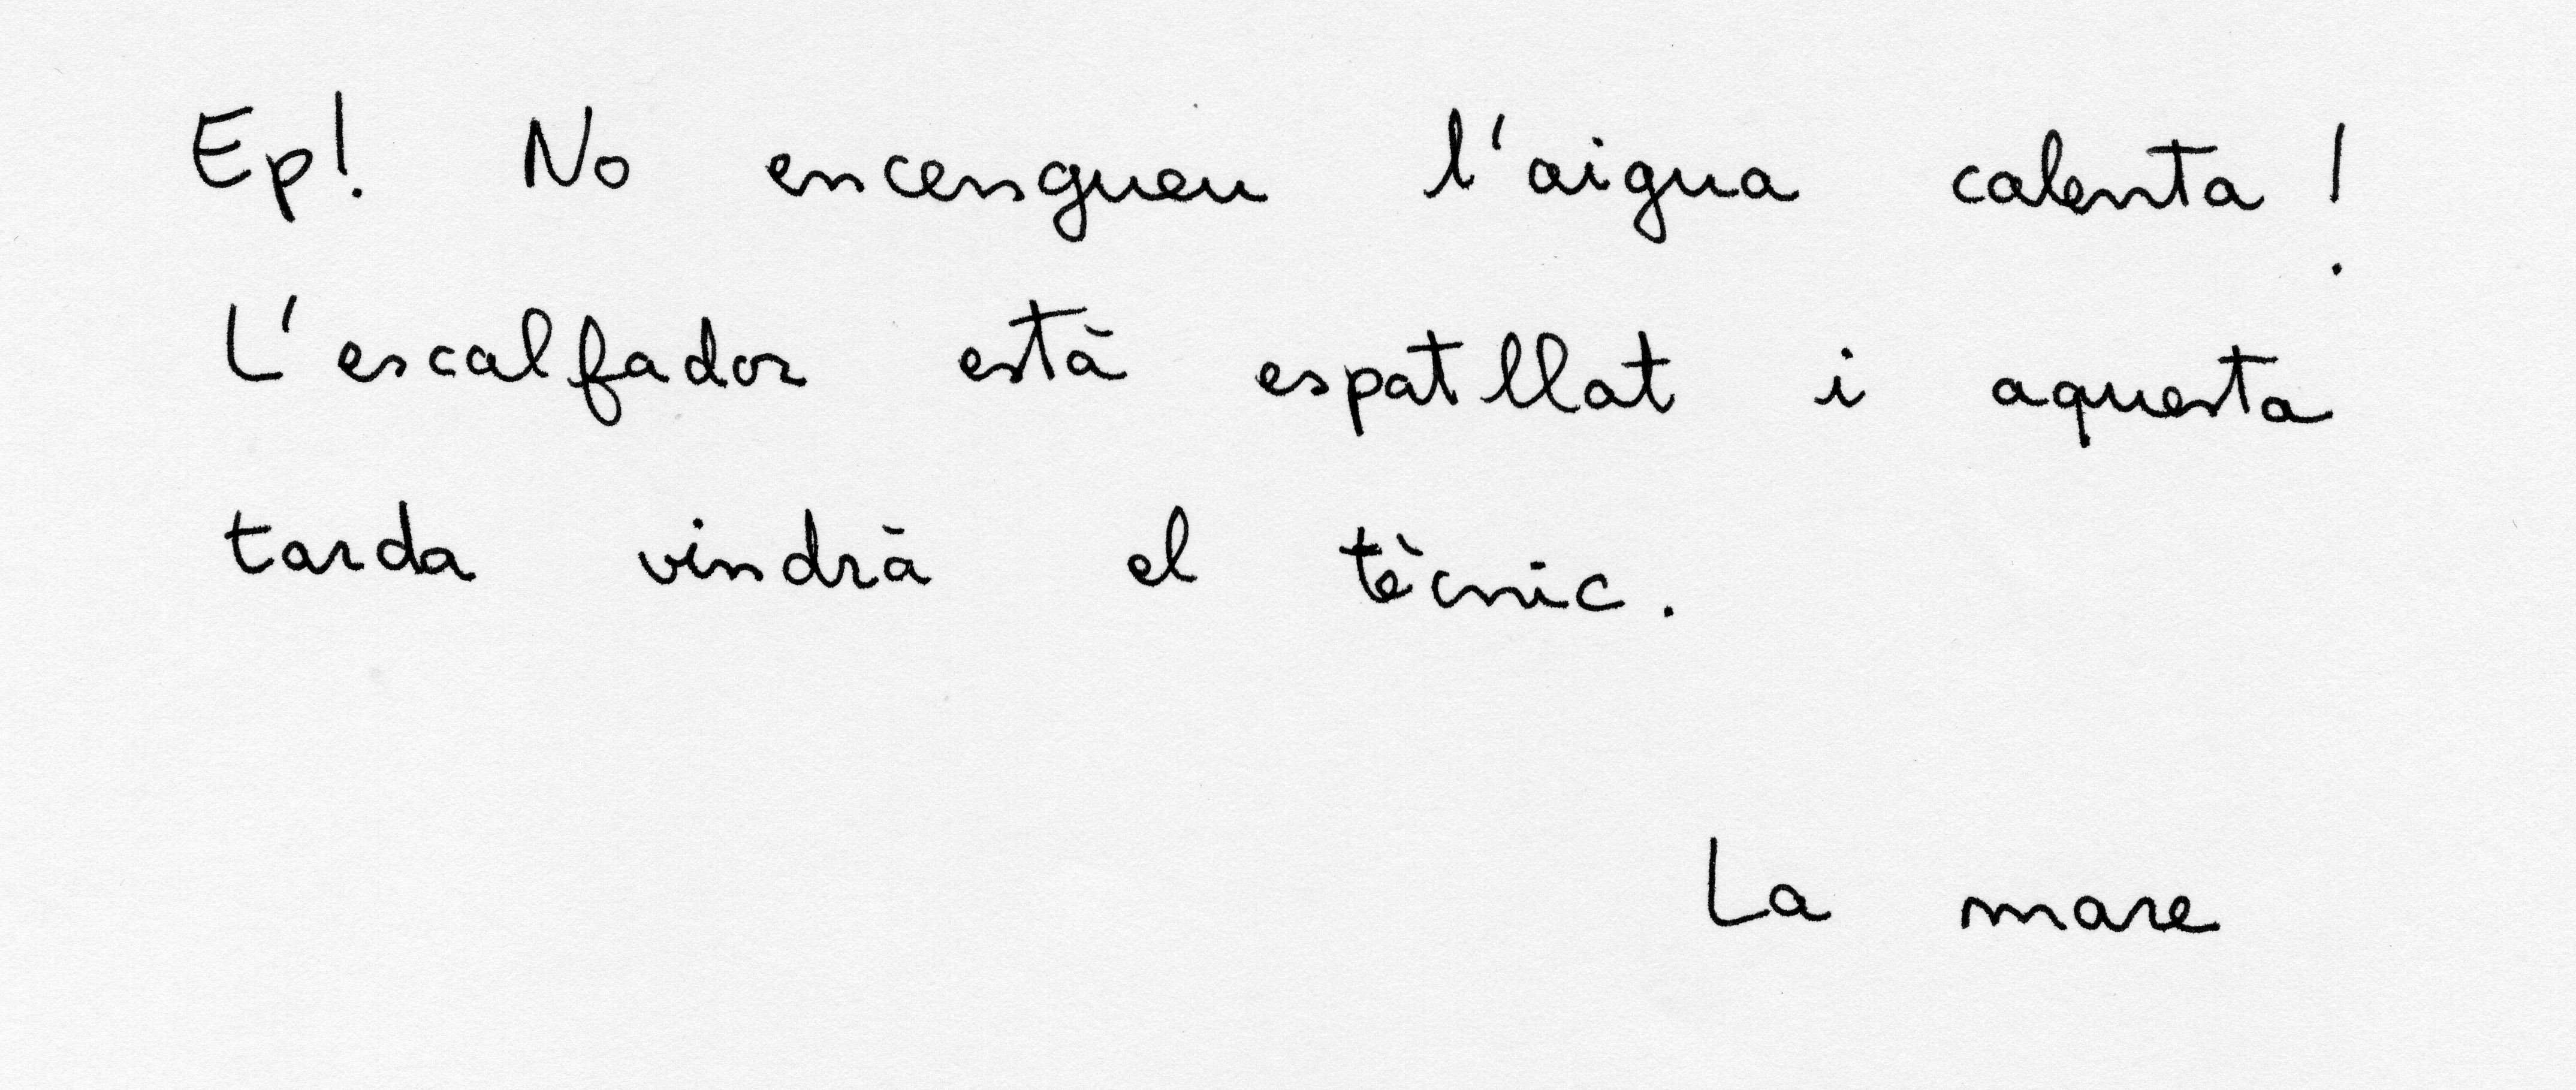 Ep! No encengueu l'aigua calenta!
L'escalfador està espatllat i aquesta
tarda vindrà el tècnic.
La mare